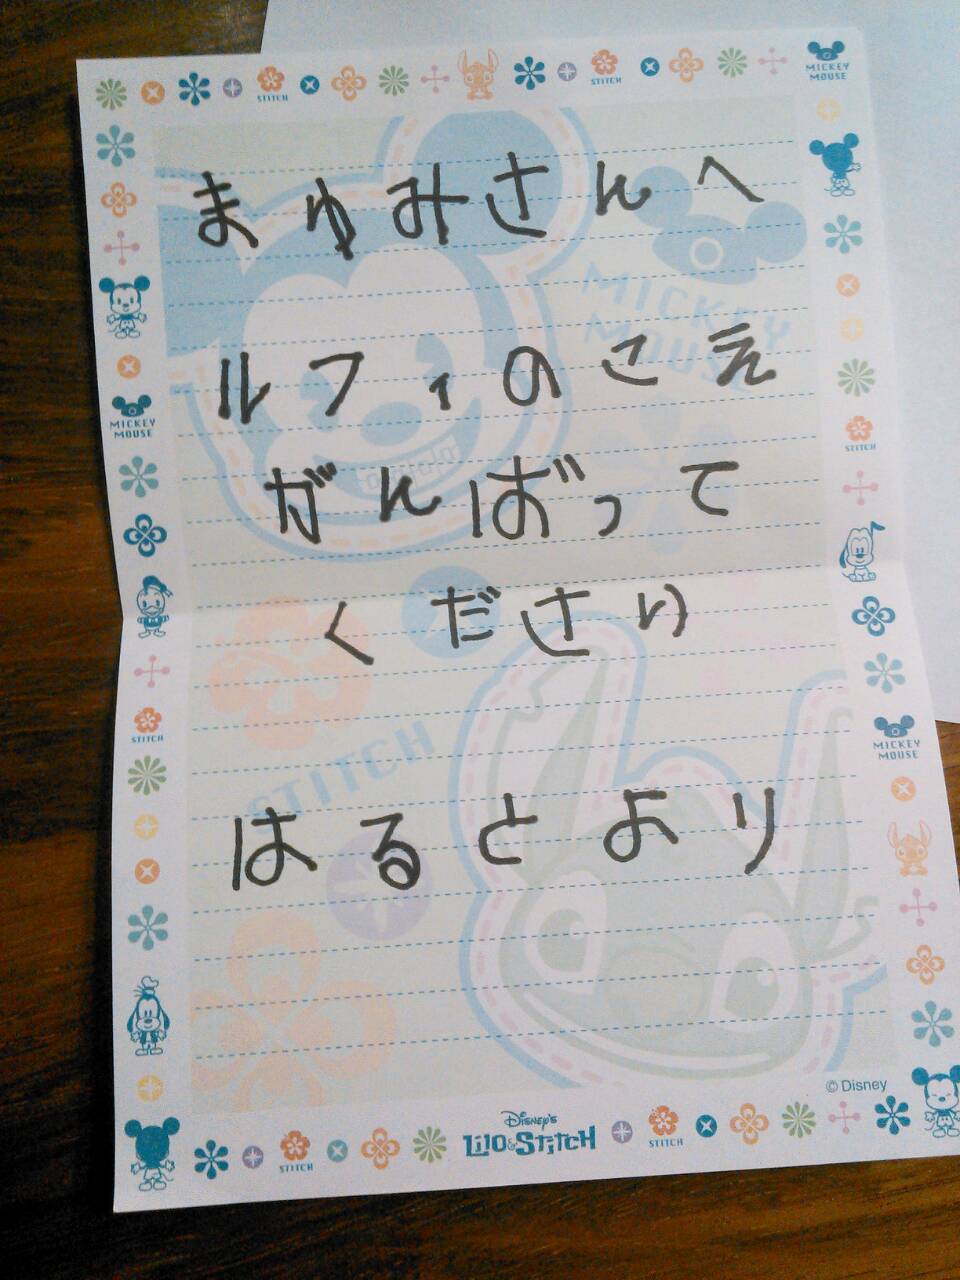 STITCH
STITCH
MICKEY MOUSE
まゆみさんへ
MICKEY MOUSE
ルフィのこえ
MICKEY MOUSE
STITCH
がんばって
ください
STITCH
MICKEY MOUSE
STITCH
はるとより
© Disney
DISNEY'S
LILO & STITCH
STITCH
STITCH